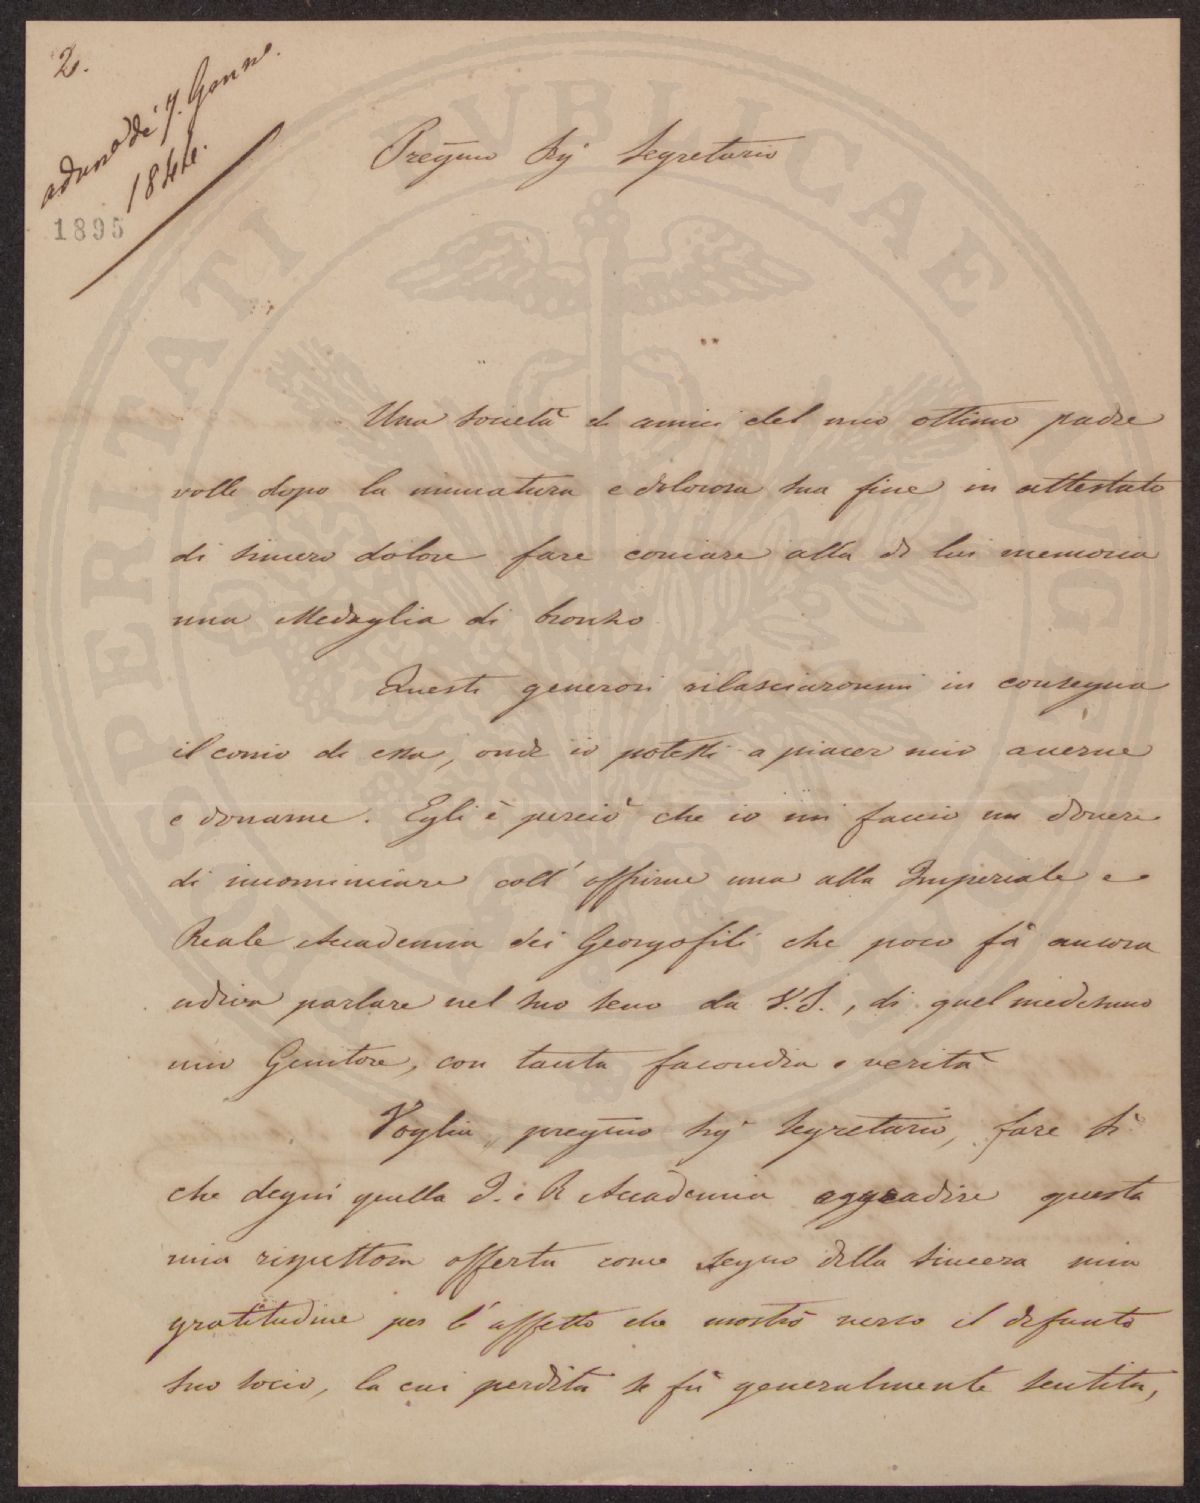 2.
adunza di 7. Genno.
1844.
1895
Pregmo Sig.r Segretario
Una società di amici del mio ottimo padre
volle dopo la immatura e dolorosa sua fine in attestato
di sincero dolore fare coniare alla di lui memoria
una Medaglia di bronzo
Questi generosi rilasciaronmi in consegna
il conio di essa, onde io potessi a piacer mio averne
e donarne. Egli è perciò che io mi faccio un dovere
di incominciare coll' offrirne una alla Imperiale e
Reale Accademia dei Georgofili che poco fà ancora
udiva parlare nel suo seno da V.S., di quel medesimo
mio Genitore, con tanta facondia e verità
Voglia, pregmo Sig.r Segretario, fare sì
che degni quella I. e R Accademia aggradire questa
mia rispettosa offerta come segno della sincera mia
gratitudine per l'affetto che mostrò verso il defunto
suo socio, la cui perdita se fù generalmente sentita,
PROSPERITATI PVBLICAE AVGENDAE